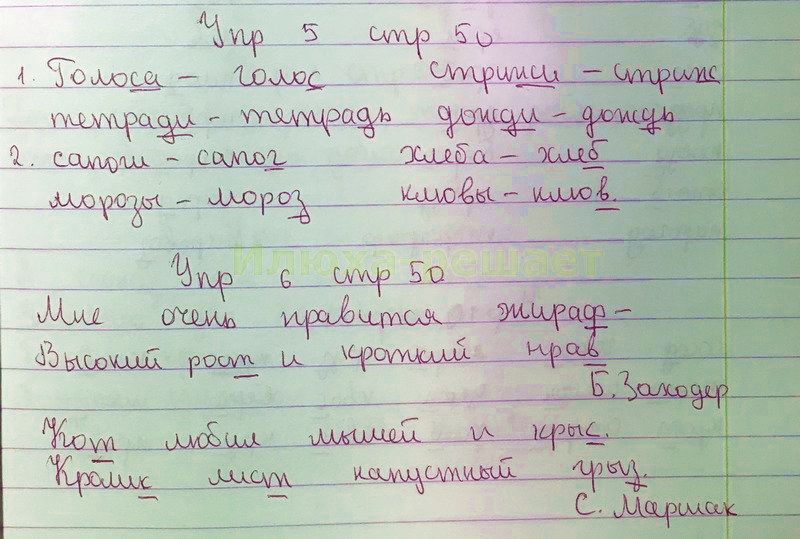 Упр 5 стр 50
1. Голоса - голос стрижи - стриж
тетради - тетрадь дожди - дождь
2. сапоги - сапог хлеба - хлеб
морозы - мороз клювы - клюв.
Илюха-решает
Упр 6 стр 50
Мне очень нравится жираф -
Высокий рост и кроткий нрав
Б. Заходер
Кот любил мышей и крыс.
Кролик лист капустный грыз.
С. Маршак